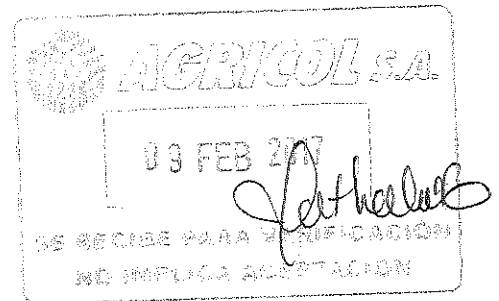 AGRICOL S.A.
09 FEB 2017
SE RECIBE PARA VERIFICACIÓN
NO IMPLICA ACEPTACIÓN